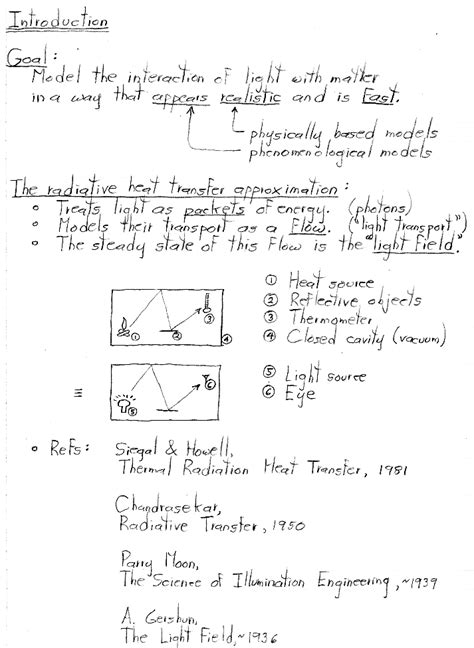 Introduction
Goal:
Model the interaction of light with matter
in a way that appears realistic and is Fast.
physically based models
phenomenological models
The radiative heat transfer approximation:
• Treats light as packets of energy. (photons)
• Models their transport as a Flow. ("light transport")
• The steady state of this Flow is the "light field."
① Heat source
② Reflective objects
③ Thermometer
④ Closed cavity (vacuum)
① ② ③ ④
≡
⑤ Light source
⑥ Eye
⑤ ⑥
• Refs: Siegal & Howell,
Thermal Radiation Heat Transfer, 1981
Chandrasekar,
Radiative Transfer, 1950
Parry Moon,
The Science of Illumination Engineering, ~1939
A. Gershun,
The Light Field, ~1936